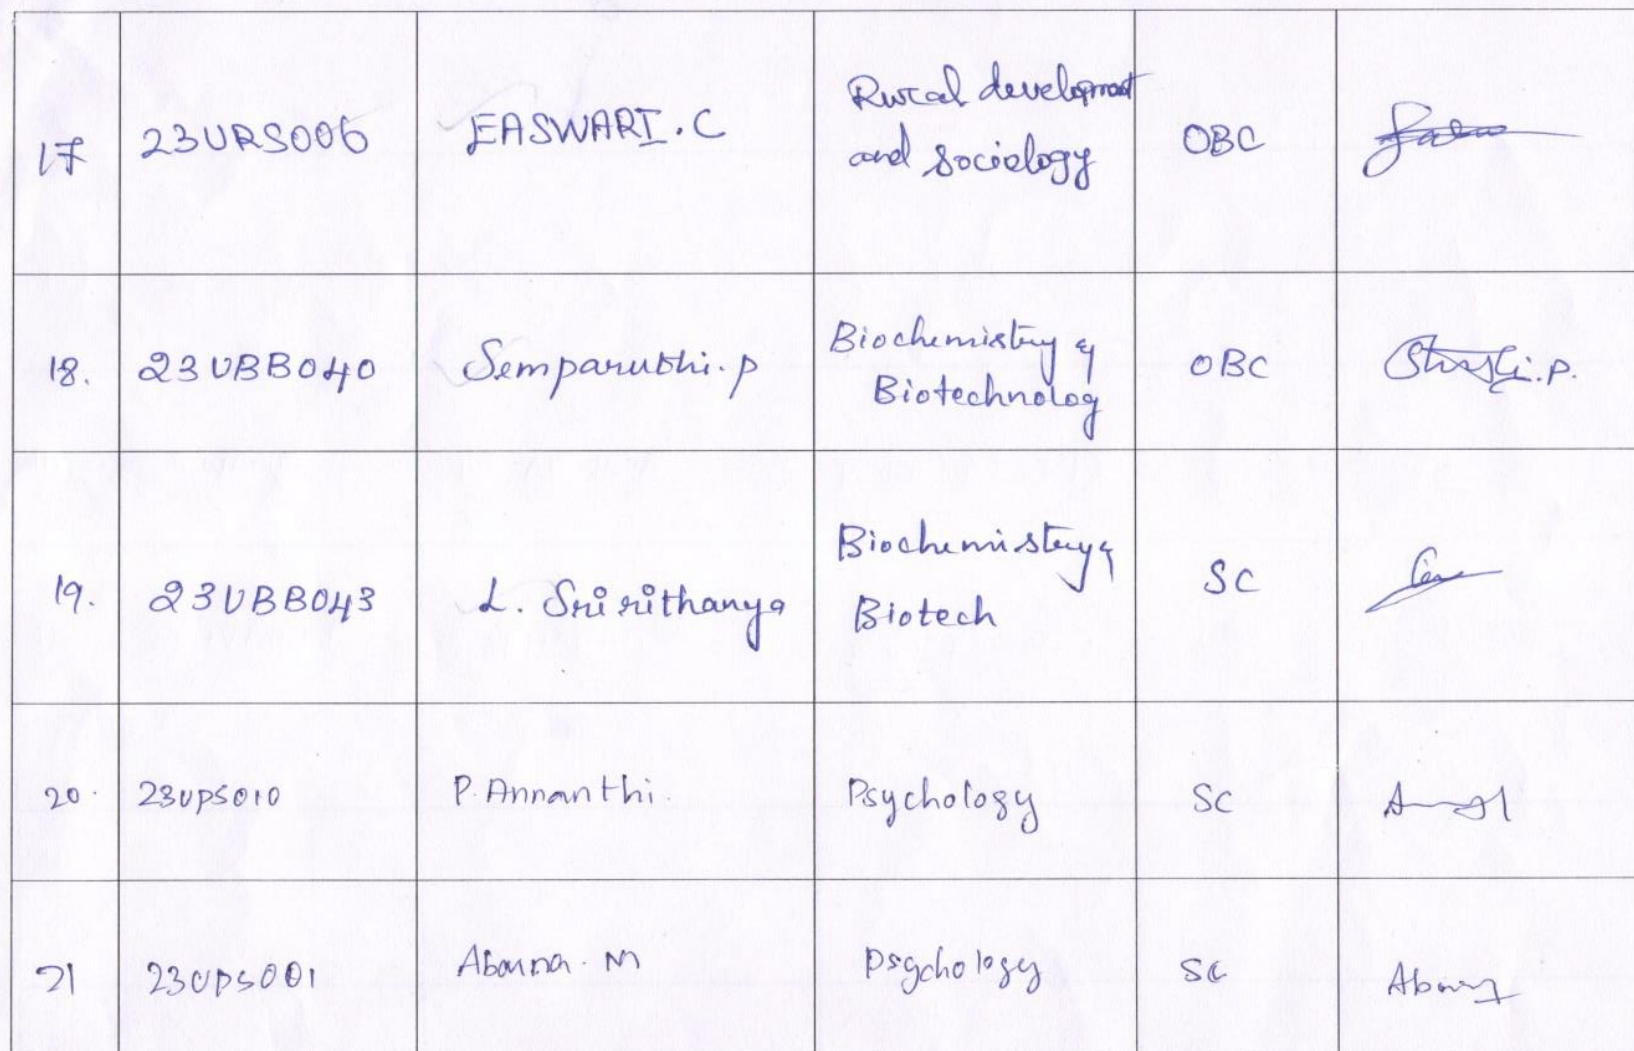 17 23URS006 EASWARI.C Rural development OBC
and sociology
18. 23UBB040 Semparuthi.p Biochemistry & OBC
Biotechnolog
19. 23UBB043 L. Sri rithanya Biochemistry & SC
Biotech
20. 23UPS010 P. Annanthi. Psychology SC
21 23UPS001 Abarna. M Psychology SC